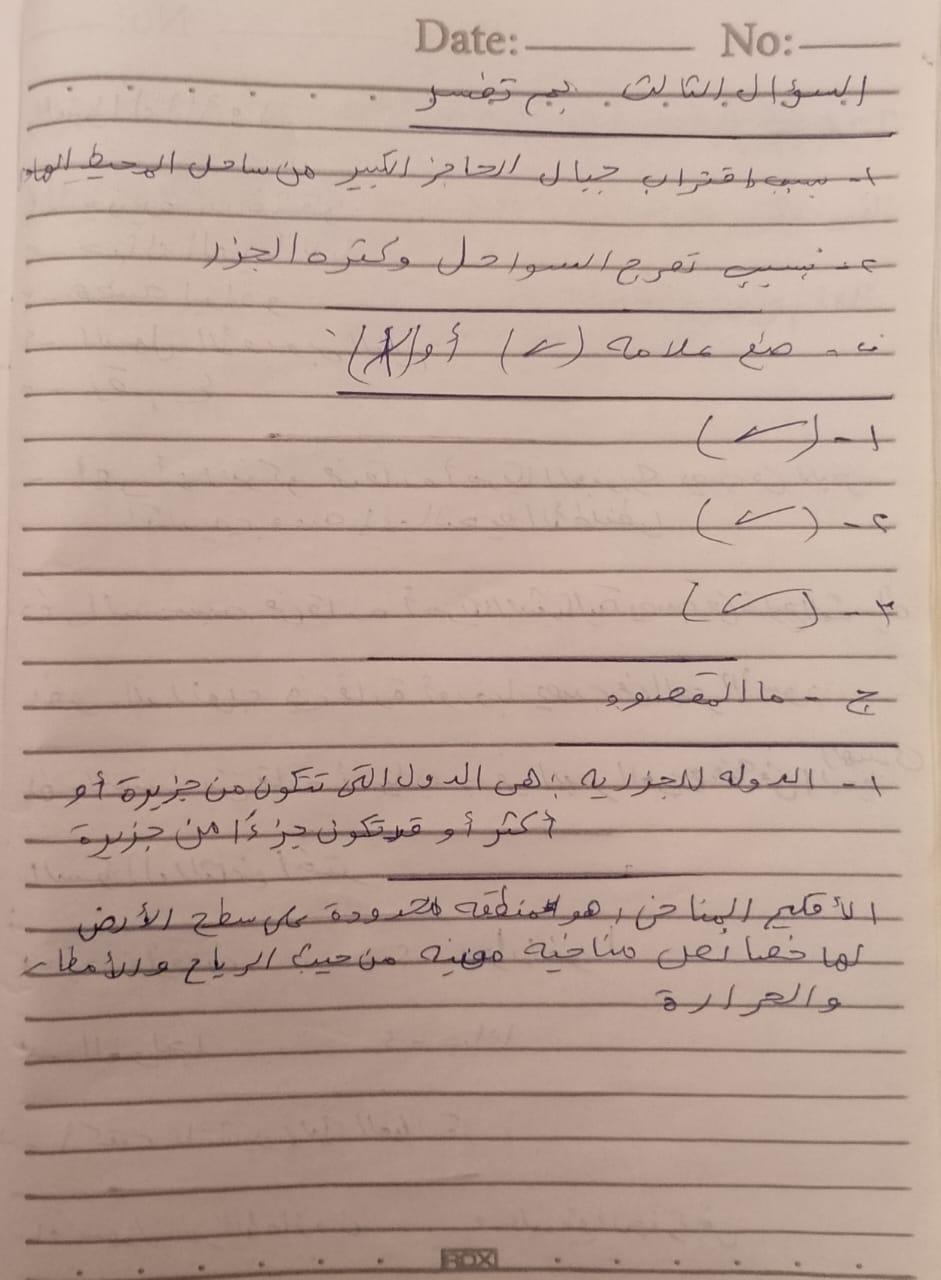 Date: No:
السؤال الثالث. بم تفسر
١- بسبب اقتراب جبال الحاجز الكبير من ساحل المحيط الهاد
٢- بسبب تعرج السواحل وكثره الجزر
ب- ضع علامه (✓) أو (X)
١- (✓)
٢- (✓)
٣- (✓)
ج - ما المقصود
١- الدوله للجزريه : هى الدول التى تتكون من جزيرة أو
أكثر أو قد تكون جزءًا من جزيرة
الأقليم المناخى : هو منطقه محدودة على سطح الأرض
لها خصائص مناخية معينه من حيث الرياح والأمطار
والحرارة
BOX